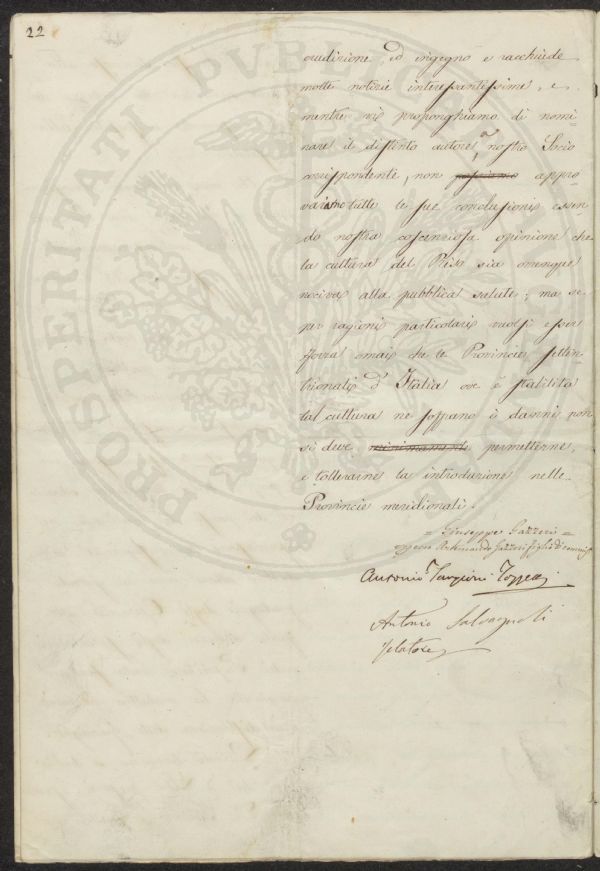 22
PROSPERITATI PVBLICAE
erudizione ed ingegno e racchiude
molte notizie interessantissime, e
mentre vi proponghiamo di nomi
nare il distinto autore a nostro Socio
corrispondente, non possiamo appro
viamo tutte le sue conclusioni essen
do nostra coscienziosa opinione che
la cultura del Riso sia ovunque
nociva alla pubblica salute; ma se
per ragioni particolari vuolsi esser
forza omai che le Provincie setten
trionali d'Italia ove è stabilita
tal cultura ne soffrano i danni non
si deve minimamente permetterne,
e tollerarne la introduzione nelle
Provincie meridionali.
= Giuseppe Gazzeri =
Antonio Targioni Tozzetti
Antonio Salvagnoli
relatore